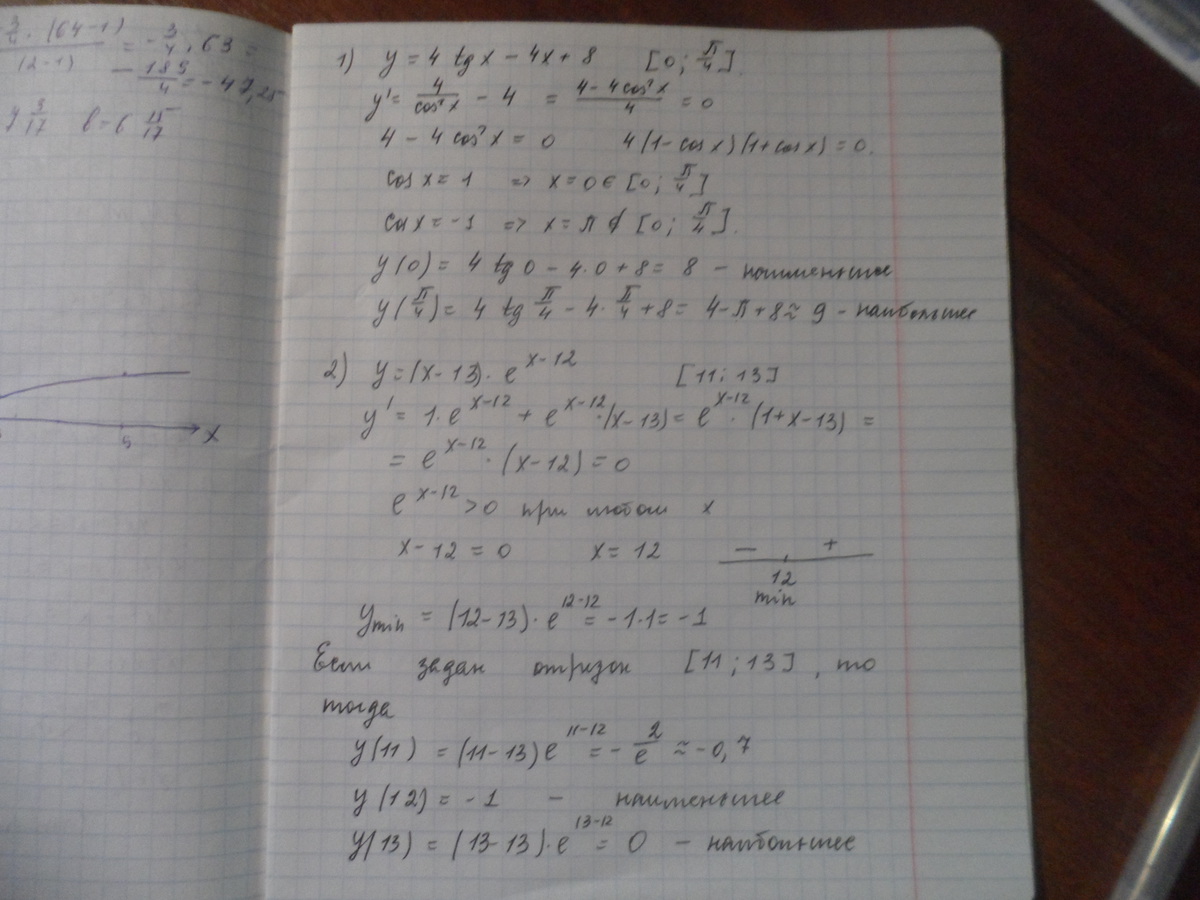 -3/4 · (64-1) / (2-1) = -3/4 · 63 =
- 189/4 = -47,25
9/17 b = 6 15/17
x
5
1) y = 4 tg x - 4x + 8 [0; π/4].
y' = 4/cos²x - 4 = (4 - 4cos²x)/4 = 0
4 - 4cos²x = 0 4(1-cosx)(1+cosx) = 0.
cos x = 1 => x = 0 ∈ [0; π/4]
cos x = -1 => x = π ∉ [0; π/4].
y(0) = 4 tg 0 - 4·0 + 8 = 8 - наименьшее
y(π/4) = 4 tg π/4 - 4·π/4 + 8 = 4-π+8 ≈ 9 - наибольшее
2) y = (x-13)·e^(x-12) [11; 13]
y' = 1·e^(x-12) + e^(x-12)·(x-13) = e^(x-12)·(1+x-13) =
= e^(x-12)·(x-12) = 0
e^(x-12) > 0 при любом x
x-12 = 0 x = 12 - +
12
min
y min = (12-13)·e^(12-12) = -1·1 = -1
Если задан отрезок [11; 13], то
тогда
y(11) = (11-13)e^(11-12) = -2/e ≈ -0,7
y(12) = -1 - наименьшее
y(13) = (13-13)·e^(13-12) = 0 - наибольшее